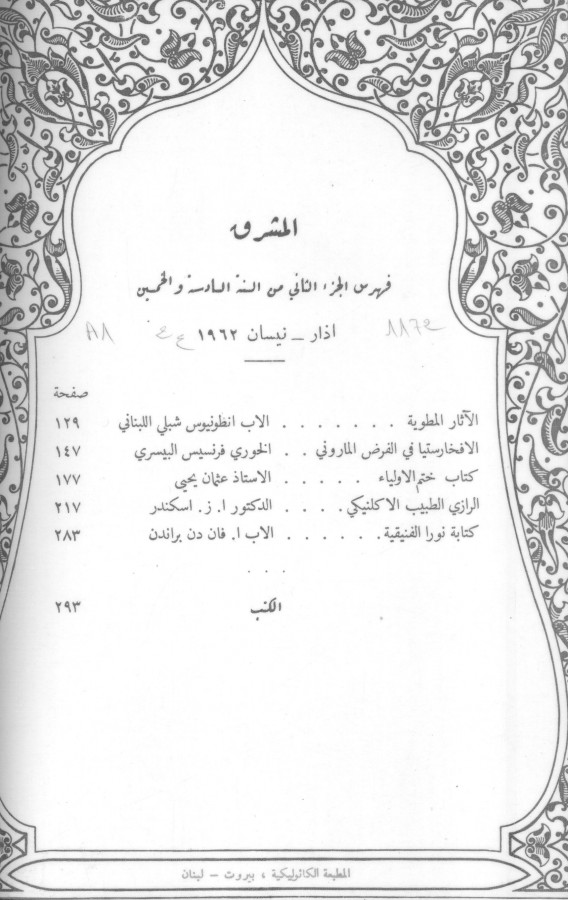 المشرق
فهرس الجزء الثاني من السنة السادسة والخمسين
اذار – نيسان ١٩٦٢
1172
صفحة
الآثار المطوية . . . . . . . الاب انطونيوس شبلي اللبناني ١٢٩
الافخارستيا في الفرض الماروني . . الخوري فرنسيس البيسري ١٤٧
كتاب ختم الاولياء . . . . . الاستاذ عثمان يحيى ١٧٧
الرازي الطبيب الاكلنيكي . . . . الدكتور ا. ز. اسكندر ٢١٧
كتابة نورا الفنيقية . . . . . . الاب ا. فان دن براندن ٢٨٣
. . .
الكتب ٢٩٣
المطبعة الكاثوليكية ، بيروت – لبنان